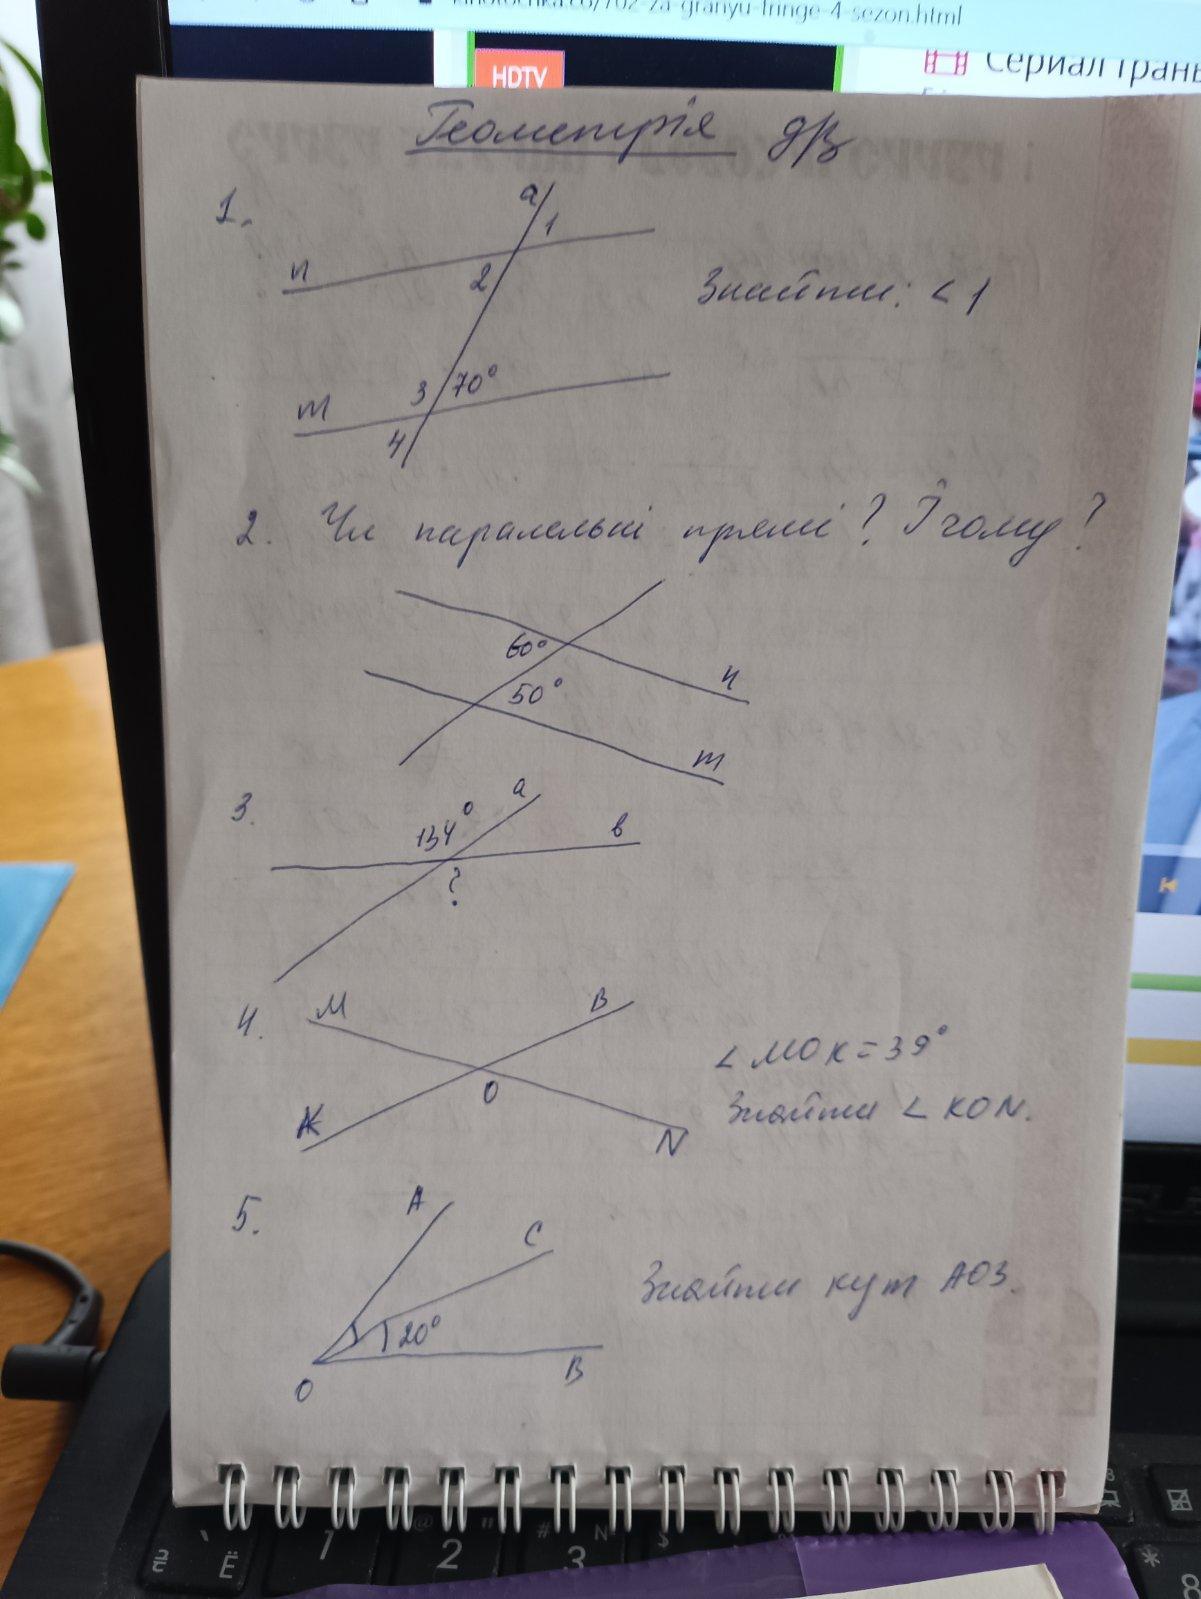 kinotochka.co/702-za-granyu-fringe-4-sezon.html
HDTV
Сериал Грань
Геометрія дз
1.
a
1
n
2
Знайти: <1
3 70°
m
4
2. Чи паралельні прямі? І чому?
60°
50°
n
m
3.
a
134°
в
?
4.
M
B
O
K
N
<MOK=39°
Знайти <KON.
5.
A
C
20°
O
B
Знайти кут АОЗ.
Ё
1
2
3